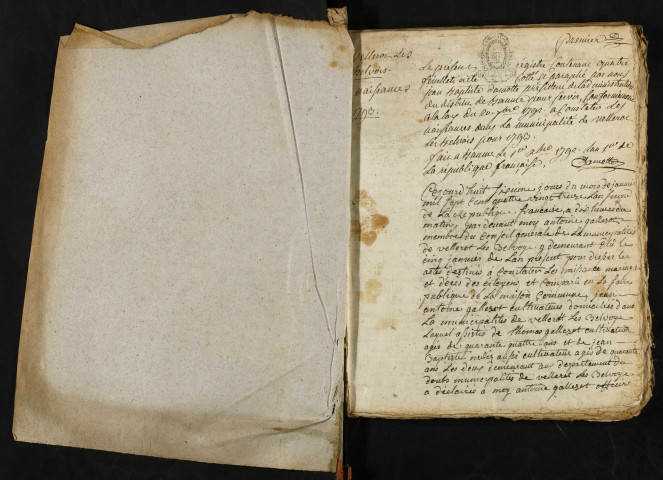 Premier
Velleron Les
Belvois
naissances
1793.
Le présent registre contenant quatre
feuillets a été cotté et paraphé par nous
jean Baptiste Damotte president de l'administration
du district de Baume pour servir, conformément
a la loy du 20. 7bre 1792. a constater les
naissances dans la municipalité de vellerot
les Belvois pour 1793.
fait a Baume le 1792. l'an 1er de
la république française. Damotte
Cejourd'huit jours du mois de janvier
mil sept cent quatre vingt treize Lan second
de La Republique francaise, a dix heures du
matin, par devant moy antoine galleret
membre du Conseil generale de La municipalités
de vellerot les Belvoye, demeurant élû le
cinq janvier de Lan present pour dresser les
actes destinés à constater Les naissance mariages
et déces des citoyens est comparu en La salle
publique de La maison Commune jean
antoine galleret cultivateur domicilies dans
La municipalités de vellerot Les Belvoye
Lequel assistés de thomas galleret cultivateur
agés de quarante quattre ans et de jean
Baptiste aussi cultivateur agés de quarante
ans Les deux demeurant au departement du
doubs municipalités de vellerot Les Belvoye
a déclarés a moy antoine galleret officier